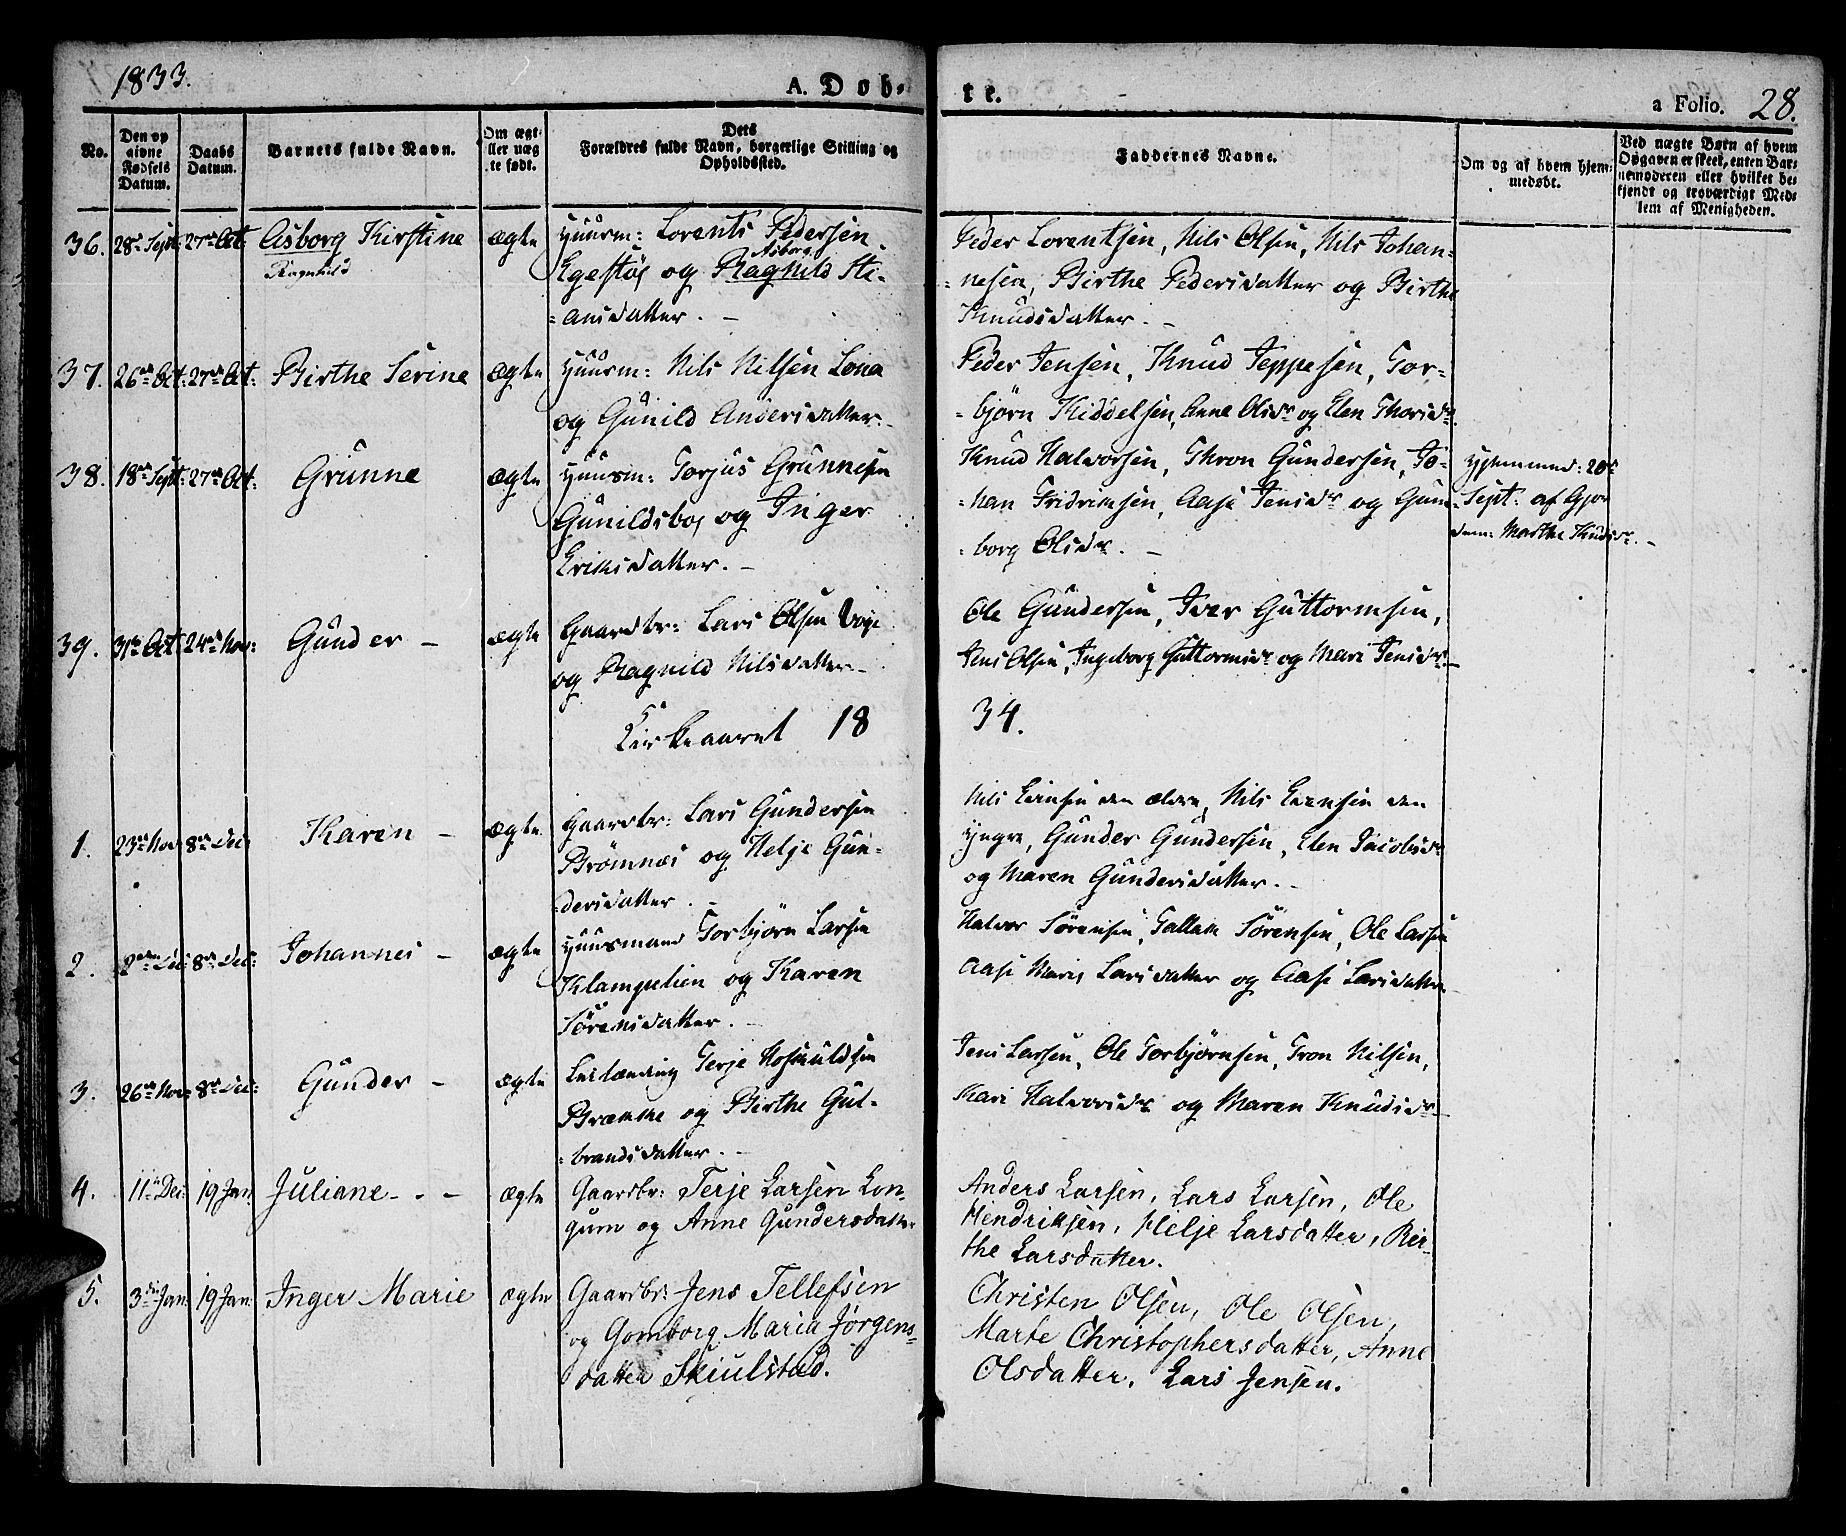 1833.
A. Døb-
te.
a Folio. 28.
No.
Den op
givne
Fødsels
Datum.
Daabs
Datum.
Barnets fulde Navn.
Om ægt-
eller uæg
te født.
Dets
Forældres fulde Navn, borgerlige Stilling og
Opholdssted.
Faddernes Navne.
Om og af hvem hjem-
medøbt.
Ved uægte Børn af hvem
Opgaven er skeet, enten Bar-
nemoderen eller hvilket be-
kjendt og troværdigt Med-
lem af Menigheden.
36. 28de Sept: 27de Oct. Asborg Kirstine ægte Huusm: Lorents Pedersen
Ragnhild
Asborg
Egestøe og Ragnild Sti-
=ansdatter. —
Peder Lorentsen, Nils Olsen, Nils Johan-
=nesen, Birthe Pedersdatter og Birthe
Knudsdatter. —
37. 26de Oct: 27de Oct: Birthe Serine ægte Huusm: Nils Nilsen Lona
og Gunild Andersdatter. —
Peder Jensen, Knud Jeppesen, Tor-
=bjørn Kiddelsen, Anne Olsdr og Elen Thorsdr
38. 18de Sept: 27de Oct: Grunne ægte Huusm: Torjus Grunnesen
Gunildsboe og Inger
Eriksdatter. —
Knud Halvorsen, Thron Gundersen, Jo-
=han Fridriksen, Aase Jensdr og Gun-
=borg Olsdr. —
Hjemmed: 20de
Sept: af Gjor
dem: Marthe Knudsdr. —
39. 31te Oct: 24de Nov: Gunder — ægte Gaardbr: Lars Olsen Voje
og Ragnild Nilsdatter —
Ole Gundersen, Iver Guttormsen,
Jens Olsen, Ingeborg Guttormsdr og Mari Jensdr —
Kirkeaaret 18
34.
1. 23de Nov: 8de Dec: Karen — ægte Gaardbr: Lars Gundersen
Brømnæs og Helje Gun-
=dersdatter. —
Nils Evensen den ældre, Nils Evensen den
Yngre, Gunder Gundersen, Elen Jacobsdr
og Maren Gundersdatter. —
2. 2den Dec: 8de Dec: Johannes — ægte Huusmand Torbjørn Larsen
Klampelien og Karen
Sørensdatter. —
Halvor Sørensen, Tallak Sørensen, Ole Larsen
Aase Marie Larsdatter og Aase Larsdatter —
3. 26de Nov: 8de Dec: Gunder — ægte Terje
Brække og Birthe Gul-
=brandsdatter. —
Jens Larsen, Ole Torbjørnsen, Tron Nilsen,
Kari Halvorsdr og Maren Knudsdr —
4. 11te Dec: 19 Jan: Juliane - - - ægte Gaardbr: Terje Larsen Lon-
gum og Anne Gundersdatter
Anders Larsen, Lars Larsen, Ole
Hendriksen, Helje Larsdatter, Bir-
the Larsdatter.
5. 3die Jan: 19 Jan: Inger Marie ægte Gaardbr: Jens Tellefsen
og Gomborg Maria Jørgens-
datter Skiulstad.
Christen Olsen, Ole Olsen,
Marte Christophersdatter, Anne
Olsdatter, Lars Jensen.